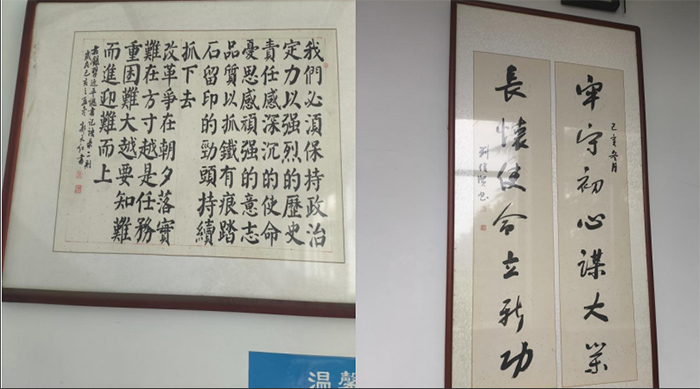 我們必須保持政治
定力以强烈的歷史
責任感深沉的使命
憂思感頑强的意志
品質以抓鐵有痕踏
石留印的勁頭持續
抓下去
改革爭在朝夕落實
難在方寸越是任務
重困難大越要知難
而進迎難而上
溫馨
己亥冬月
牢守初心謀大業
長懷使命立新功